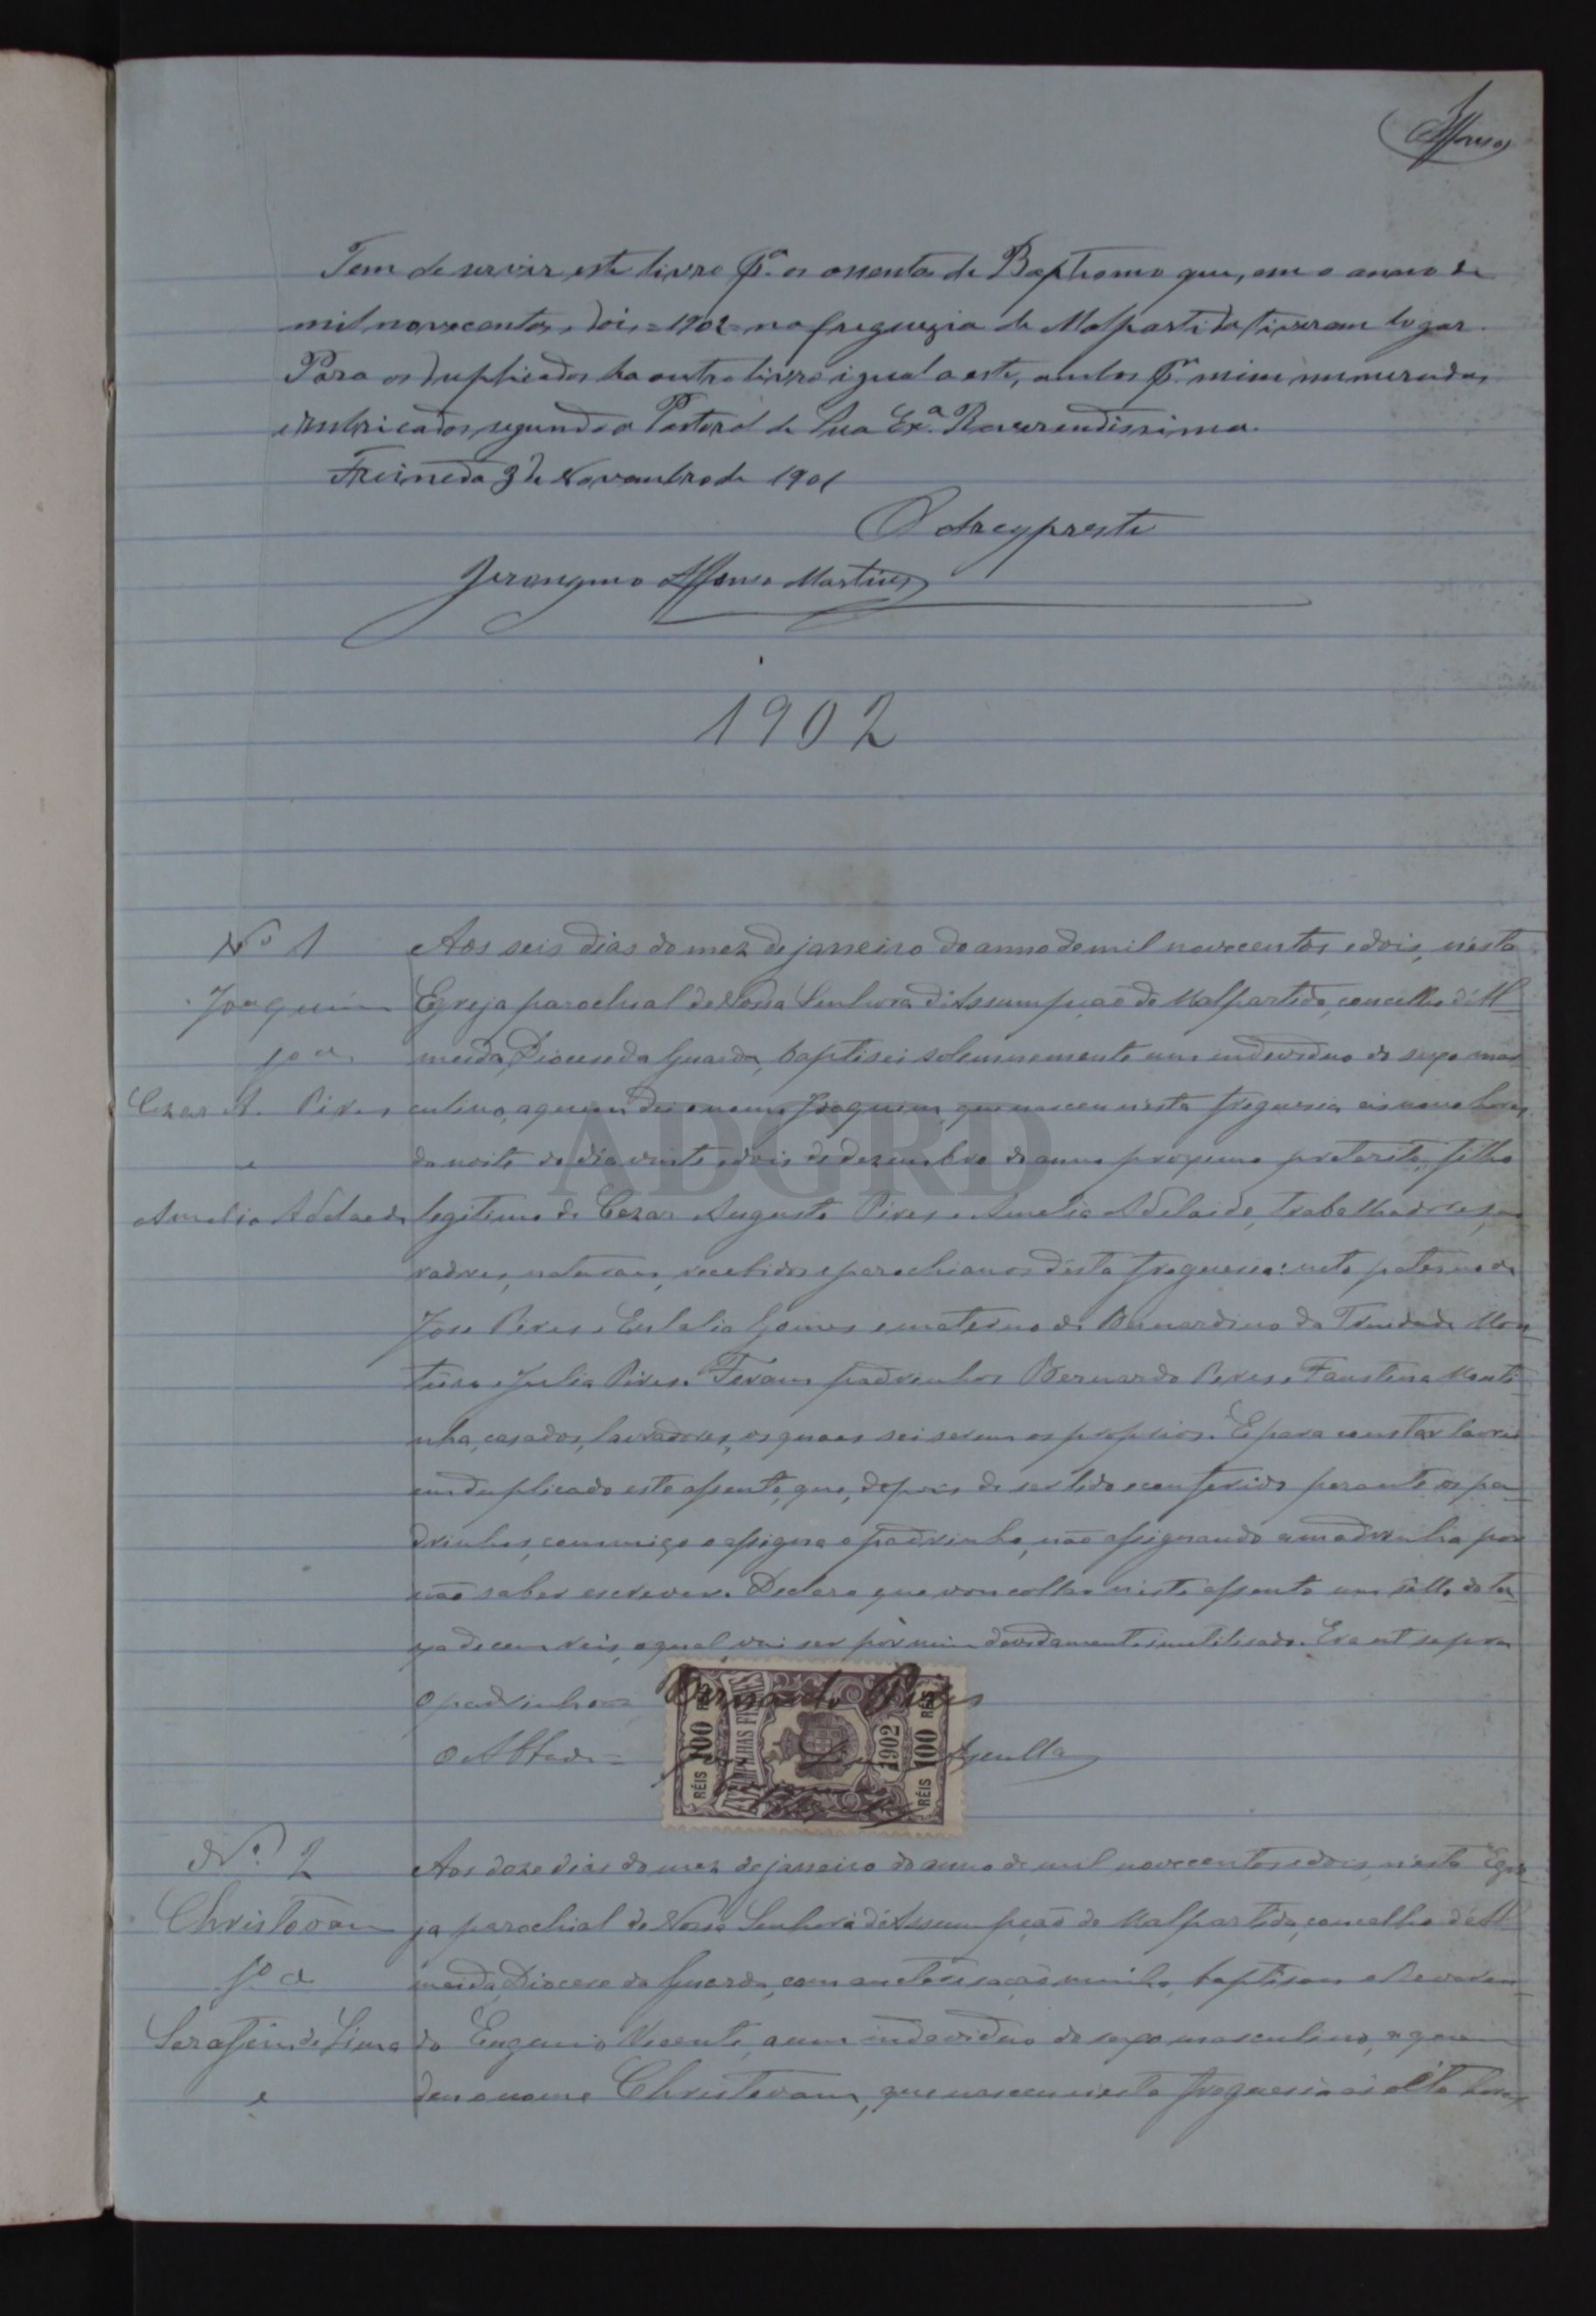 Affonso
Tem de servir este livro p.ª os assentos de Baptismo que, em o anno de
mil novecentos e dois = 1902 = na freguezia de Malpartida tiveram logar.
Para os duplicados ha outro livro igual a este, ambos p.r mim numerados
e rubricados segundo a Pastoral de Sua Ex.ª Reverendissima.
Freineda 3 de Novembro de 1901
O Arcypreste
Jeronymo Affonso Martins
1902
Nº 1
Joaquim
fº de
Cezar A. Pires
e
Amelia Adelaide
Aos seis dias do mez de janneiro do anno de mil novecentos e dois, n'esta
Egreja parochial de Nossa Senhora d'Assumpção de Malpartida, concelho d'Al-
meida, Diocese da Guarda, baptisei solemnemente um individuo do sexo mas-
culino, a quem dei o nome Joaquim, que nasceu n'esta freguesia ás nove horas
da noite do dia vinte e dois de dezembro do anno proximo preterito, filho
legitimo de Cezar Augusto Pires e Amelia Adelaide, trabalhadores, mo-
radores, naturaes, recebidos e parochianos d'esta freguesia: neto paterno de
José Pires e Eulalia Gomes e materno de Bernardino da Trindade Mon-
teiro e Julia Pires. Foram padrinhos Bernardo Pires e Faustina Monti-
nha, casados, lavradores, os quaes sei serem os proprios. E para constar lavrei
em duplicado este assento, que, depois de ser lido e conferido perante os pa-
drinhos, commigo o assigna o padrinho, não assignando a madrinha por
não saber escrever. Declaro que vou collar n'este assento um sello da ta-
xa de cem reis, o qual vai ser por mim devidamente inutilisado. Era ut supra
O padrinho = Bernardo Pires
O Abbade =
RÉIS 100 RÉIS
ESTAMPILHAS FISCAES
1902
RÉIS 100 RÉIS
Nº 2
Christovam
fº de
Serafim de Lima
e
Aos doze dias do mez de janneiro do anno de mil novecentos e dois n'esta Egre-
ja parochial de Nossa Senhora d'Assumpção de Malpartida, concelho d'Al-
meida, Diocese da Guarda, com auctorisação minha, baptisou o Reveren-
do Eugenio Vicente, a um individuo do sexo masculino, a quem
deu o nome Christovam, que nasceu n'esta freguesia ás oito horas
ADGRD